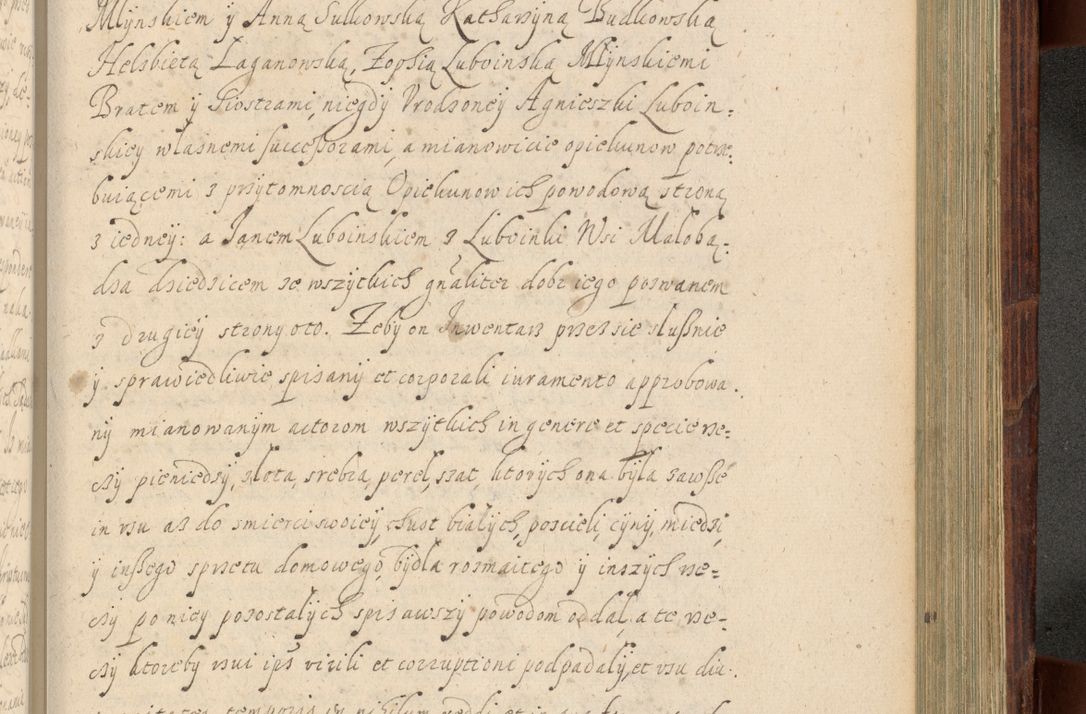 Młynskiem ÿ Anną Sulkowską Katharzyną Budkowską
Helsbietą Łaganowską, Zophią Luboinską Młÿnskiemi
Bratem ÿ Siostrami, niegdÿ Vrodzoneÿ Agnieszki Luboin:
skieÿ własnemi successorami, a mianowicie opiekunow potrze:
buiącemi z przÿtomnoscią Opiekunow ich powodową stroną
z iedneÿ: a Janem Luboinskiem z Luboinki Wsi Małobą:
dza dziedzicem ze wszÿtkich gnaliter dobr iego pozwanem
z drugieÿ stronÿ oto. Zebÿ on Inwentarz przez sie słusznie
ÿ sprawiedliwie spisanÿ et corporali iuramento approbowa:
nÿ mianowanÿm actorom wszÿtkich in genere et specie rze:
czÿ pieniedzÿ, złota, srebra, pereł, szat, ktorÿch ona bÿła zawsze
in vsu az do smierci swoieÿ, chust białÿch, poscieli, cÿnÿ, miedzi,
ÿ inszego sprzetu domowego, bÿdła rozmaitego ÿ inszÿch rze:
czÿ po nieÿ pozostałÿch spisawszÿ powodom oddał, a te rze:
czÿ ktoreby vsui ips virili et corruptioni podpadałÿ, et vsu diu: